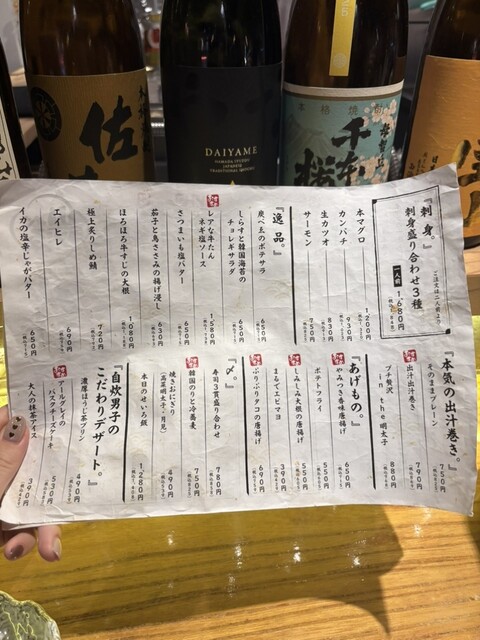 佐
DAIYAME
本格焼酎
『刺身。』
刺身盛り合わせ3種
ご注文は二人前より
一人前 1,680円
本マグロ 1,200円
カンパチ 930円
生カツオ 830円
サーモン 750円
『逸品。』
炭べゑのポテサラ 650円
しらすと韓国海苔のチョレギサラダ
レアな牛たんネギ塩ソース 1,580円
さつまいも塩バター 650円
茄子と鳥ささみの揚げ浸し 630円
ほろほろ牛すじの大根 1,080円
極上炙りしめ鯖 720円
エイヒレ 690円
イカの塩辛じゃがバター 650円
『本気の出汁巻き。』
そのままプレーン 750円
出汁出汁巻き 790円
プチ贅沢 in the 明太子 880円
『あげもの。』
やみつき辛味唐揚げ 650円
ポテトフライ 550円
しみしみ大根の唐揚げ 550円
まるでエビマヨ 390円
ぷりぷりタコの唐揚げ 690円
『〆。』
寿司3貫盛り合わせ 780円
韓国のりと冷蕎麦 750円
焼きおにぎり 490円
(高菜明太子・月見)
本日のせいろ飯 1,280円
『自炊男子のこだわりデザート。』
濃厚ほうじ茶プリン 490円
アールグレイのバスクチーズケーキ 530円
大人の抹茶アイス 390円